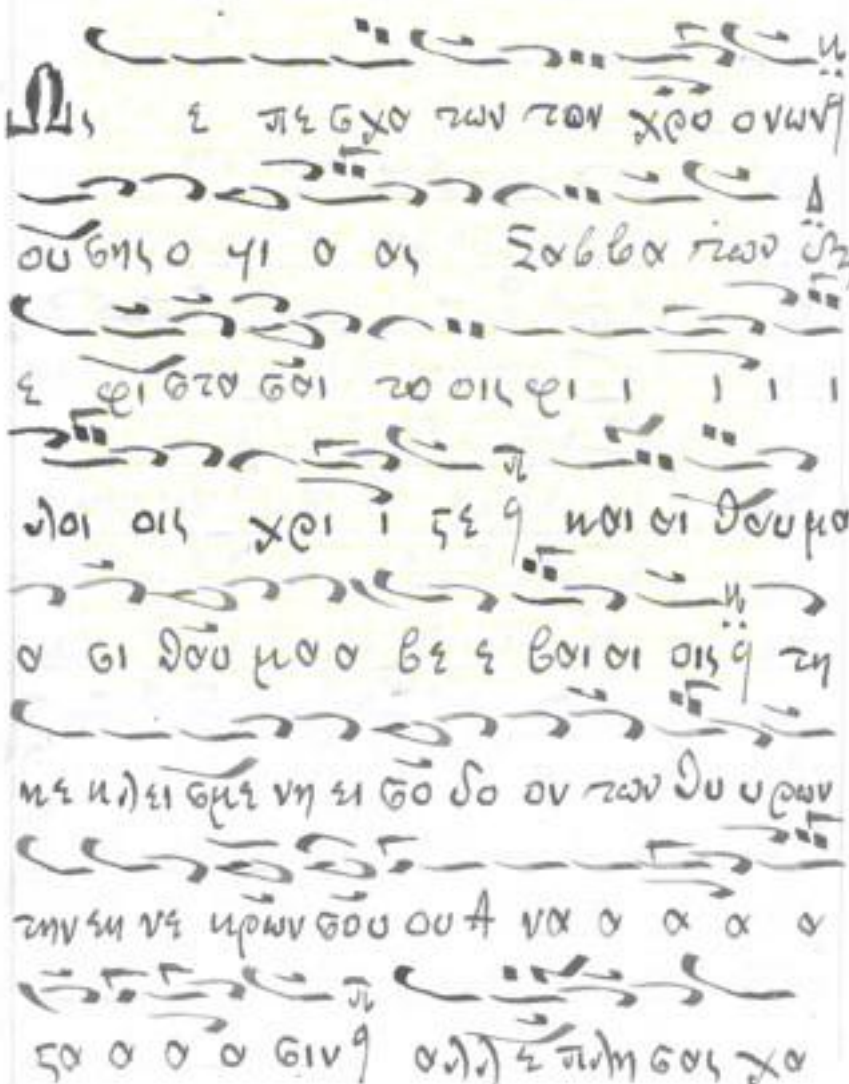 Ως ε πε σχα των των χρο ο νων
ου σης ο ψι α ας Σαβ βα των
ε φι στα σαι το οις φι ι ι ι ι
λοι οις χρι ι στε και αι θαυμα
α σι θαυ μα α βε ε βαι αι οις τη
κε κλει σμε νη ει σο δο ον των θυ υ ρων
την εκ νε κρων σου ου Α να α α α α
στα α α α σιν αλλ ε πλη σας χα